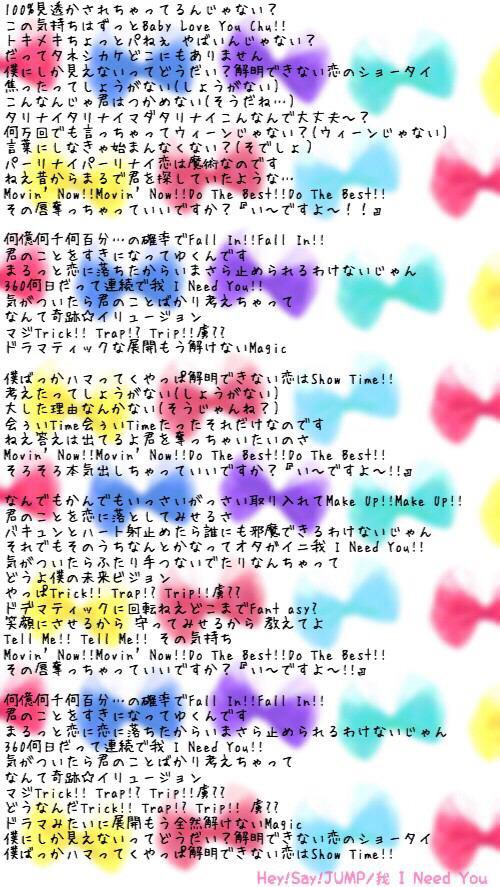 100%見透かされちゃってるんじゃない？
この気持ちはずっとBaby Love You Chu!!
トキメキちょっとパねぇ やばいんじゃない？
だってタネシカケどこにもありません
僕にしか見えないってどうだい？解明できない恋のショータイ
焦ったってしょうがない(しょうがない)
こんなんじゃ君はつかめない(そうだね…)
タリナイタリナイマダタリナイこんなんで大丈夫～？
何万回でも言っちゃってウィーンじゃない？(ウィーンじゃない)
言葉にしなきゃ始まんなくない？(そでしょ)
パーリナイパーリナイ恋は魔術なのです
ねえ昔からまるで君を探していたような…
Movin' Now!!Movin' Now!!Do The Best!!Do The Best!!
その唇奪っちゃっていいですか？『い～ですよ～！！』
何億何千何百分…の確率でFall In!!Fall In!!
君のことをすきになってゆくんです
まるっと恋に落ちたからいまさら止められるわけないじゃん
360何日だって連続で我 I Need You!!
気がついたら君のことばかり考えちゃって
なんて奇跡☆イリュージョン
マジTrick!! Trap!? Trip!!虜??
ドラマティックな展開もう解けないMagic
僕ばっかハマってくやっぱ解明できない恋はShow Time!!
考えたってしょうがない(しょうがない)
大した理由なんかない(そうじゃんね？)
会うぃTime会うぃTimeたったそれだけなのです
ねえ答えは出てるよ君を奪っちゃいたいのさ
Movin' Now!!Movin' Now!!Do The Best!!Do The Best!!
そろそろ本気出しちゃっていいですか？『い～ですよ～!!』
なんでもかんでもいっさいがっさい取り入れてMake Up!!Make Up!!
君のことを恋に落としてみせるさ
バキュンとハート射止めたら誰にも邪魔できるわけないじゃん
それでもそのうちなんとかなってオタがイニ我 I Need You!!
気がついたらふたり手つないでたりなんちゃって
どうよ僕の未来ビジョン
やっぱTrick!! Trap!? Trip!!虜??
ドデマティックに回転ねえどこまでFant asy?
笑顔にさせるから 守ってみせるから 教えてよ
Tell Me!! Tell Me!! その気持ち
Movin' Now!!Movin' Now!!Do The Best!!Do The Best!!
その唇奪っちゃっていいですか？『い～ですよ～!!』
何億何千何百分…の確率でFall In!!Fall In!!
君のことをすきになってゆくんです
まるっと恋に恋に落ちたからいまさら止められるわけないじゃん
360何日だって連続で我 I Need You!!
気がついたら君のことばかり考えちゃって
なんて奇跡☆イリュージョン
マジTrick!! Trap!? Trip!!虜??
どうなんだTrick!! Trap!? Trip!! 虜??
ドラマみたいに展開もう全然解けないMagic
僕にしか見えないってどうだい？解明できない恋のショータイ
僕ばっかハマってくやっぱ解明できない恋はShow Time!!
Hey!Say!JUMP/我 I Need You